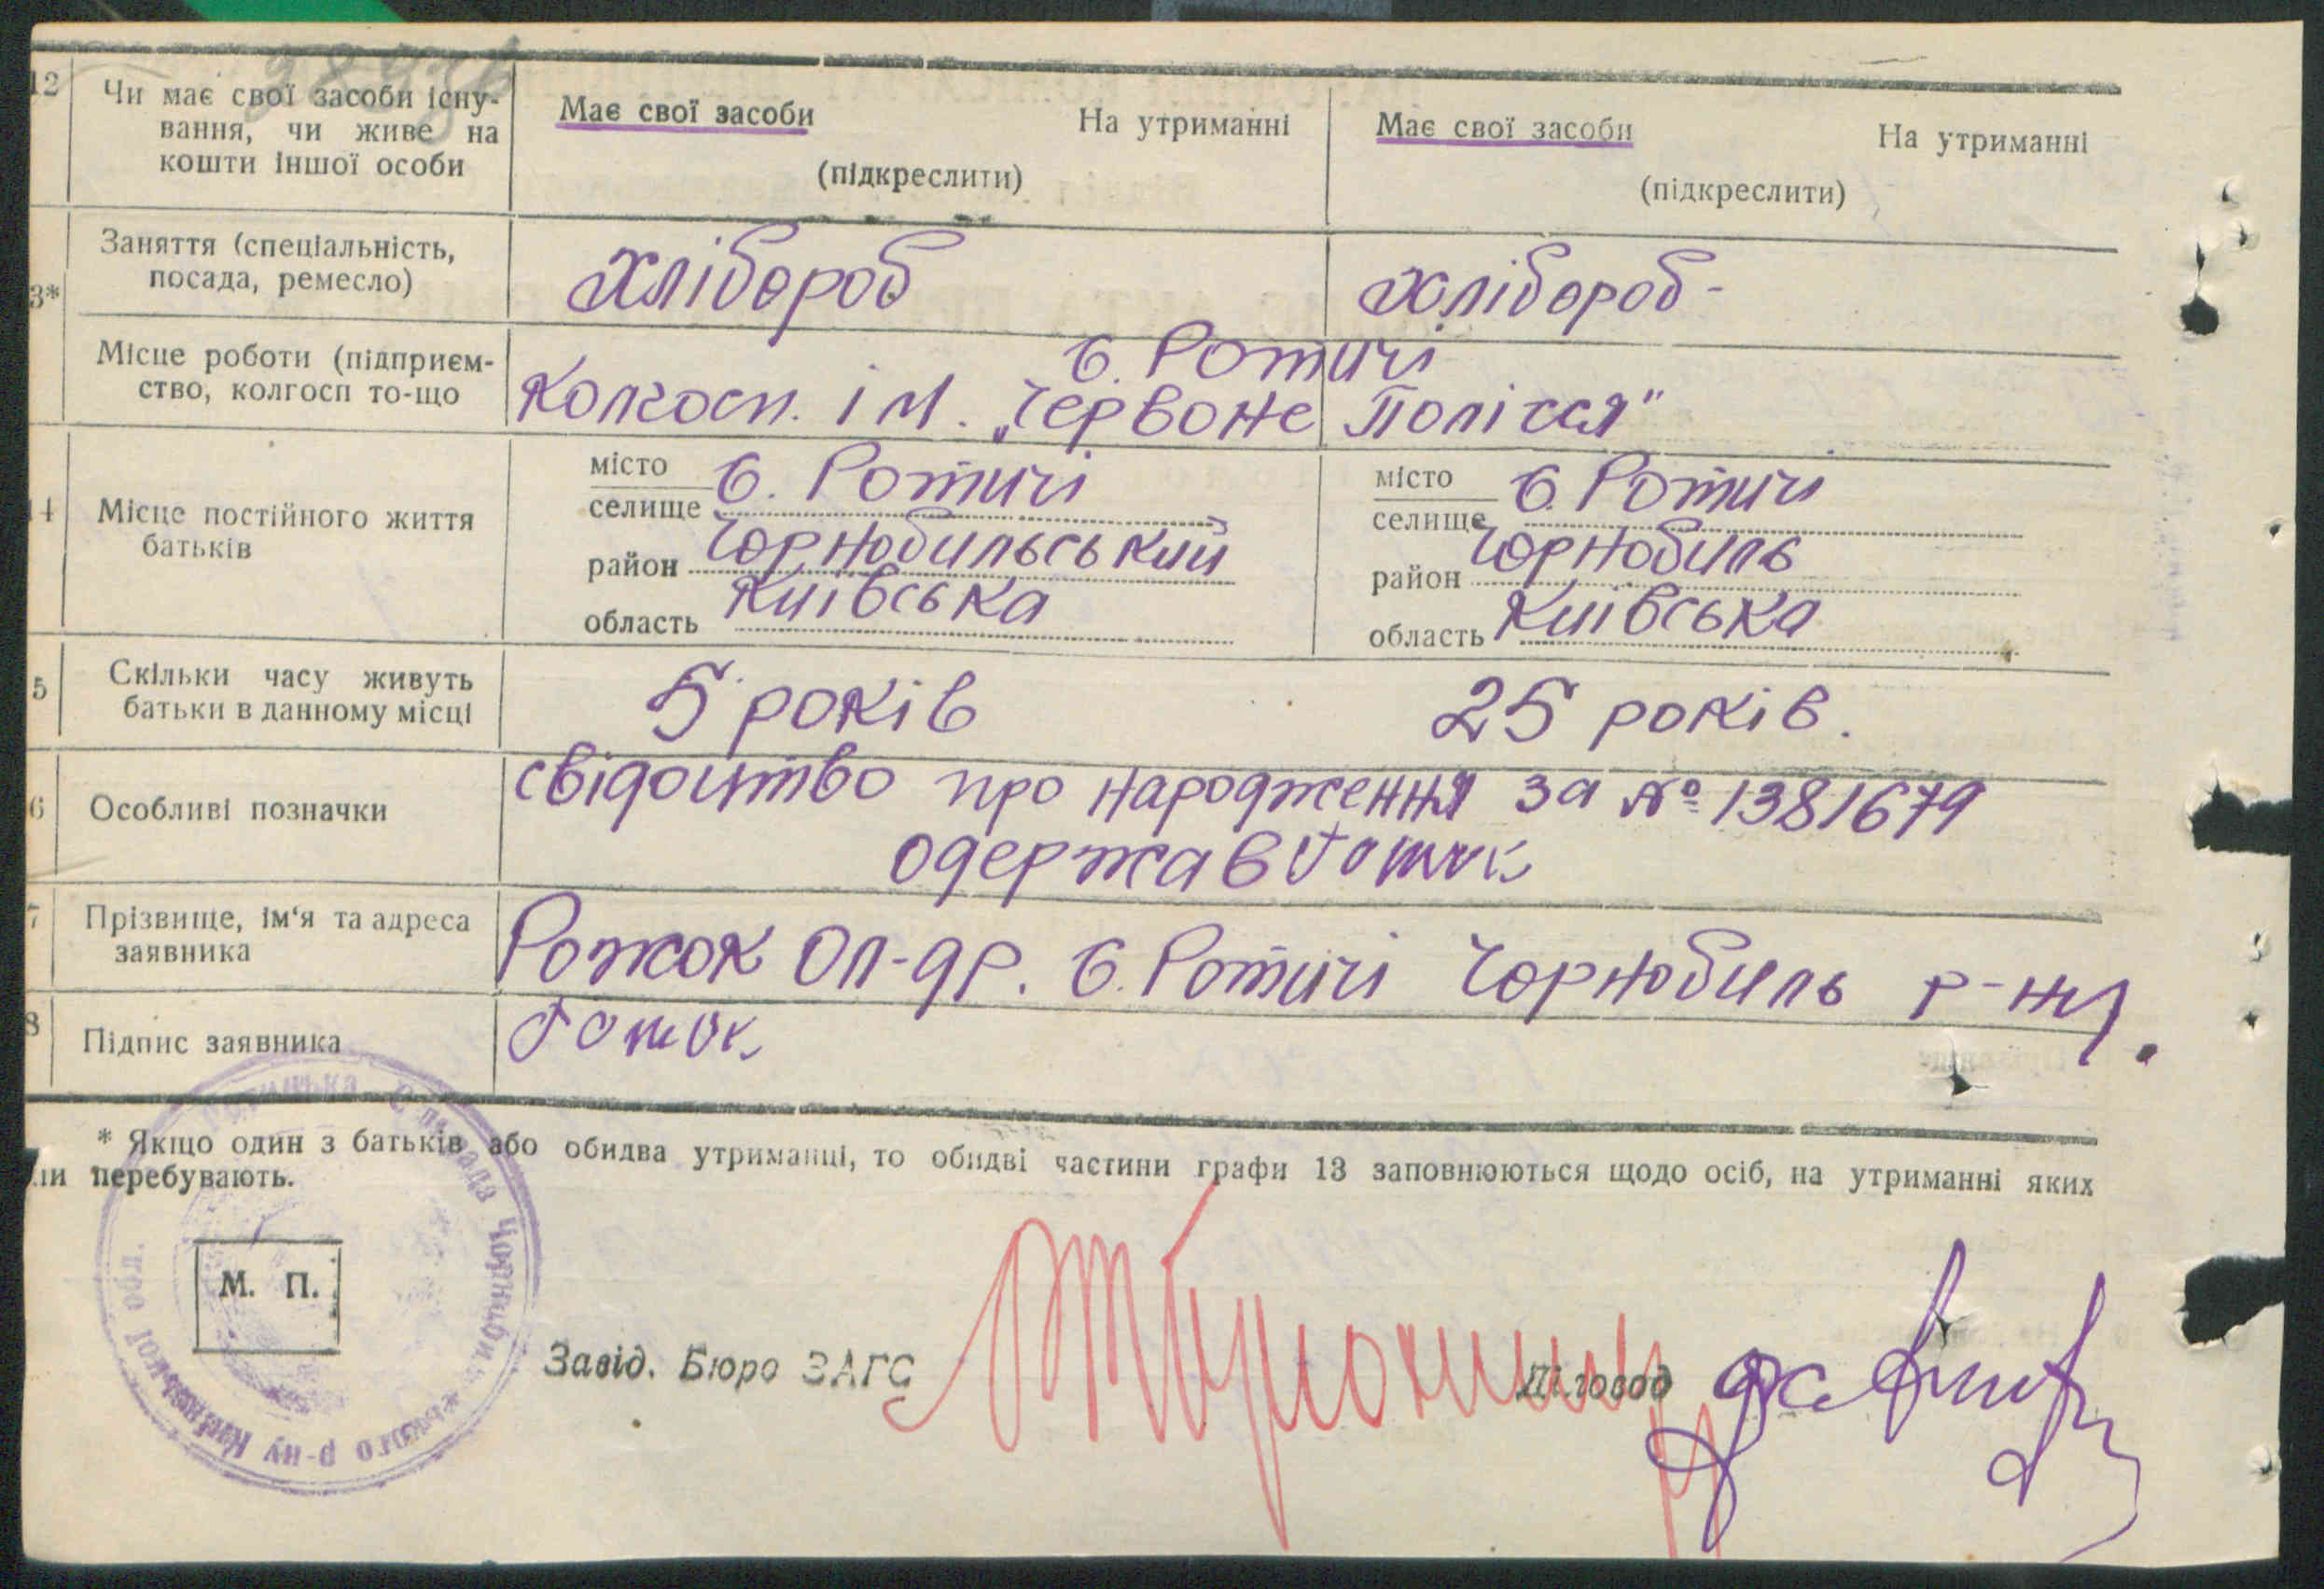 12 Чи має свої засоби існу-
вання, чи живе на
кошти іншої особи
Має свої засоби На утриманні
(підкреслити)
Має свої засоби На утриманні
(підкреслити)
3* Заняття (спеціальність,
посада, ремесло)
хлібороб
хлібороб-
Місце роботи (підприєм-
ство, колгосп то-що
с. Ротичі
Колгосп. ім. „Червоне Полісся"
14 Місце постійного життя
батьків
місто
селище с. Ротичі
район Чорнобильський
область Київська
місто
селище с. Ротичі
район Чорнобиль
область Київська
5 Скільки часу живуть
батьки в данному місці
5 років
25 років.
6 Особливі позначки
свідоцтво про народження за № 1381679
одержав
7 Прізвище, ім'я та адреса
заявника
Рожок Ол-др. с. Ротичі Чорнобиль р-ну.
8 Підпис заявника
Рожок
* Якщо один з батьків або обидва утриманці, то обидві частини графи 13 заповнюються щодо осіб, на утриманні яких
перебувають.
М. П.
Завід. Бюро ЗАГС
Діловод